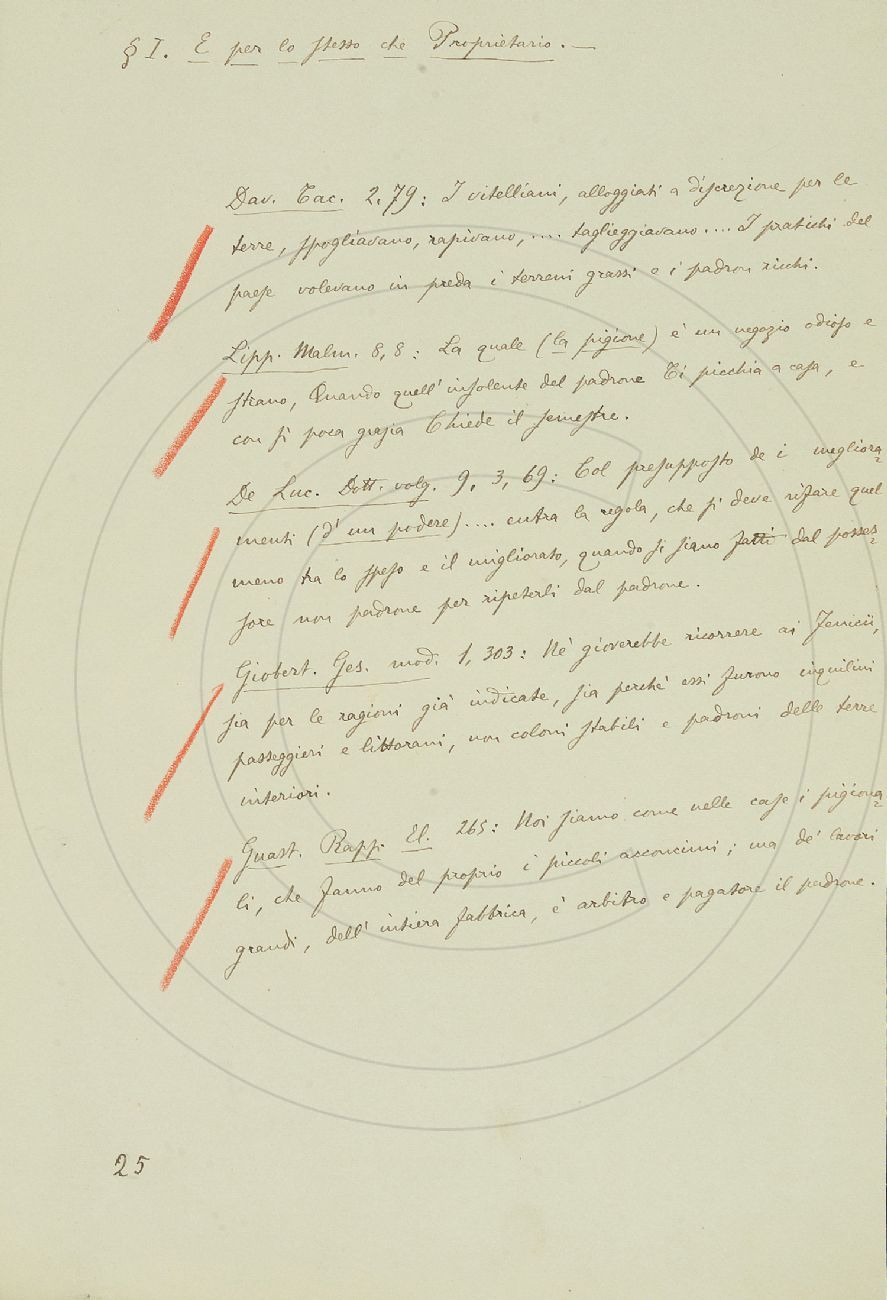 § I. E per lo stesso che Proprietario. —
Dav. Tac. 2, 79: I vitelliani, alloggiati a discrezione per le
terre, spogliavano, rapivano, .... taglieggiavano .... I pratichi del
paese volevano in preda i terreni grassi e i padron ricchi.
Lipp. Malm. 8, 8: La quale (la pigione) è un negozio odioso e
strano, Quando quell' insolente del padrone Ti picchia a casa, e
con sì poca grazia Chiede il semestre.
De Luc. Dott. volg. 9, 3, 69: Col presupposto de i megliora=
menti (d' un podere) .... entra la regola, che si deve rifare quel
meno tra lo speso e il migliorato, quando si siano fatti dal posses=
sore non padrone per ripeterli dal padrone.
Giobert. Ges. mod. 1, 303: Nè gioverebbe ricorrere ai Fenicii,
sia per le ragioni già indicate, sia perchè essi furono inquilini
passeggieri e littorani, non coloni stabili e padroni delle terre
interiori.
Guast. Rapp. El. 265: Noi siamo come nelle case i pigiona=
li, che fanno del proprio i piccoli acconcimi; ma de' lavori
grandi, dell' intiera fabbrica, è arbitro e pagatore il padrone.
25